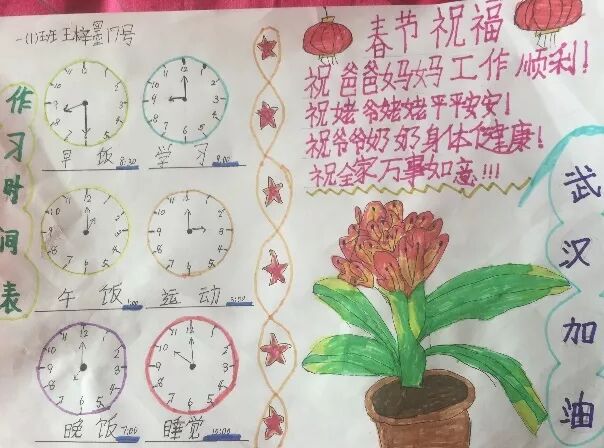 一(1)班 王梓墨 17号
作习时间表
早饭 8:30
学习 9:00
午饭 1:00
运动 3:00
晚饭 7:00
睡觉 10:00
春节祝福
祝爸爸妈妈工作顺利!
祝姥爷姥姥平平安安!
祝爷爷奶奶身体健康!
祝全家万事如意!!!
武汉加油